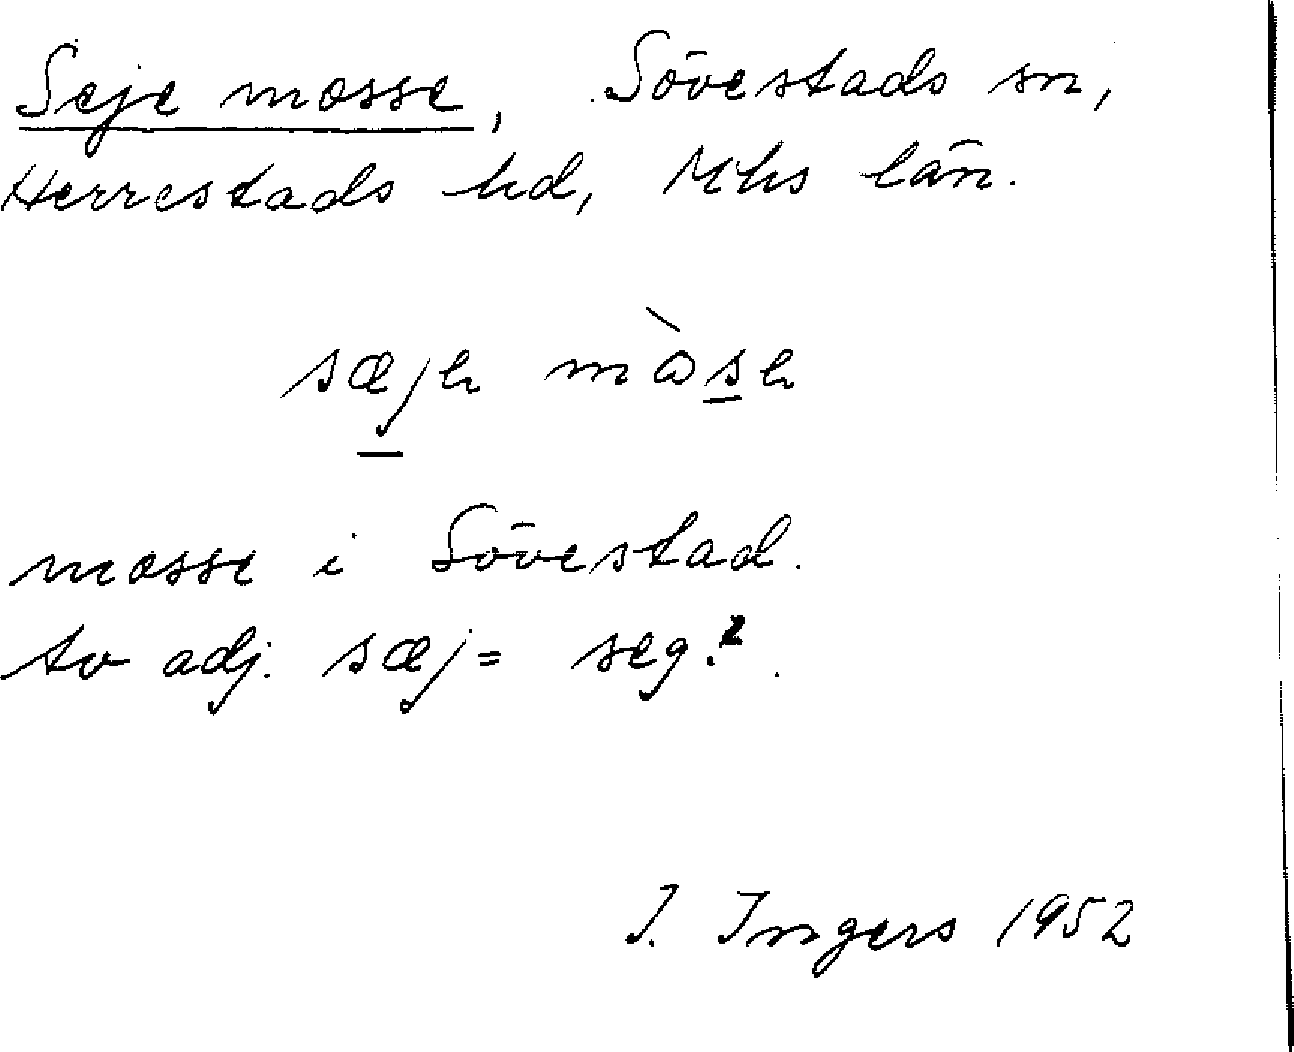 Seje mosse, Sövestads sn,
Herrestads hd, Mhs län.
sæjə mòsə
mosse i Sövestad.
Av adj. sæj = seg.?
I. Ingers 1952